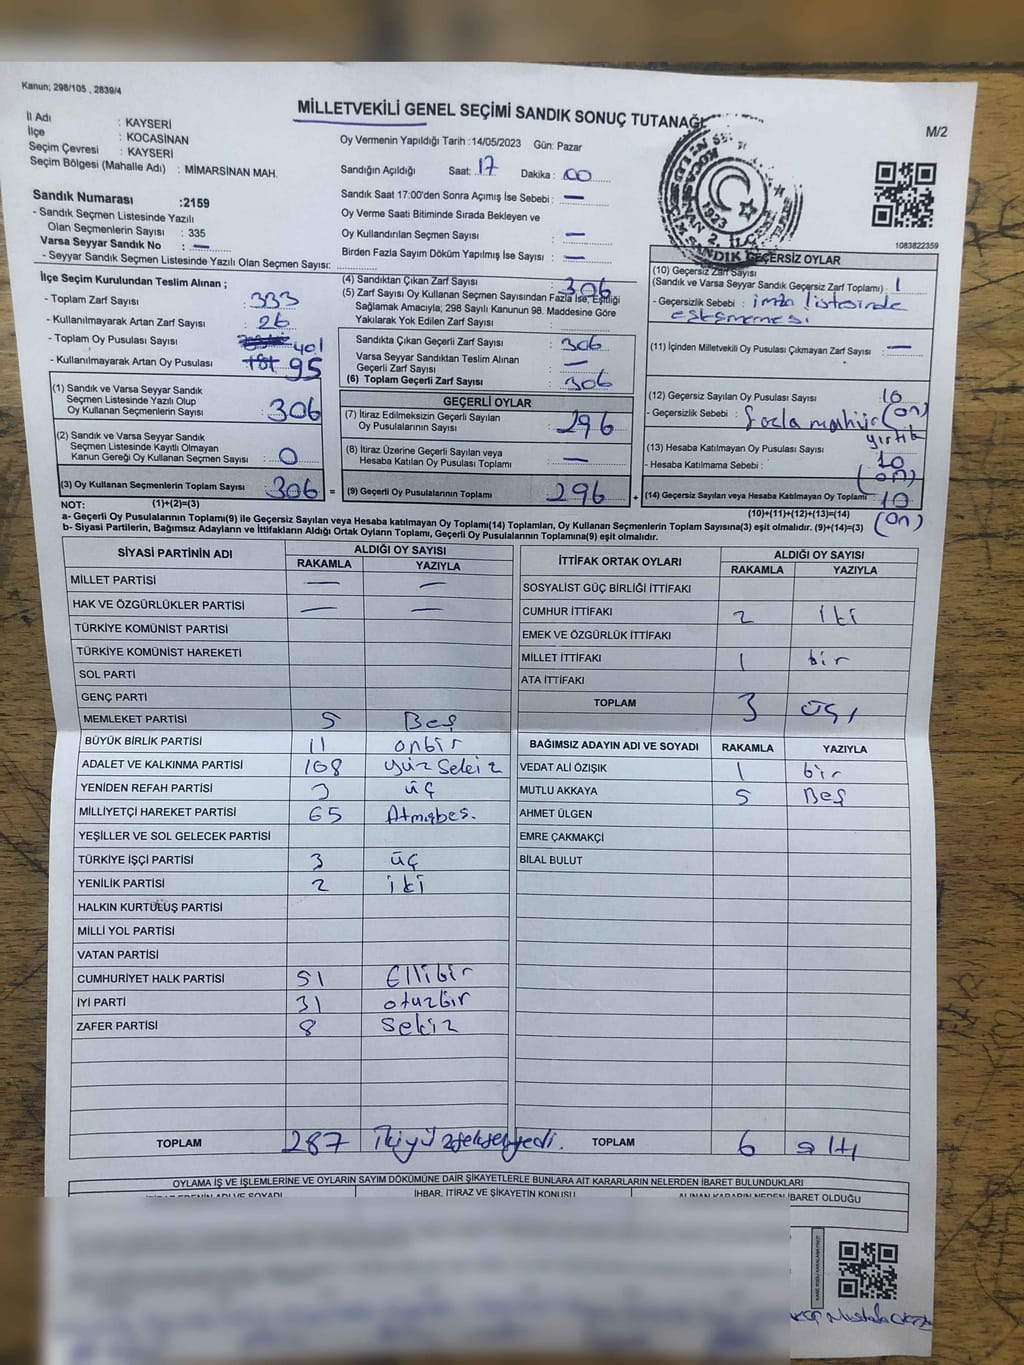 Kanun; 298/105 , 2839/4
MİLLETVEKİLİ GENEL SEÇİMİ SANDIK SONUÇ TUTANAĞI
M/2
İl Adı : KAYSERİ
İlçe : KOCASİNAN
Seçim Çevresi : KAYSERİ
Seçim Bölgesi (Mahalle Adı) : MİMARSİNAN MAH.
Oy Vermenin Yapıldığı Tarih :14/05/2023 Gün: Pazar
Sandığın Açıldığı Saat: 17 Dakika : 00
Sandık Saat 17:00'den Sonra Açılmış İse Sebebi : —
Oy Verme Saati Bitiminde Sırada Bekleyen ve
Oy Kullandırılan Seçmen Sayısı : —
Birden Fazla Sayım Döküm Yapılmış İse Sayısı : —
1083822359
Sandık Numarası :2159
- Sandık Seçmen Listesinde Yazılı
Olan Seçmenlerin Sayısı : 335
Varsa Seyyar Sandık No : —
- Seyyar Sandık Seçmen Listesinde Yazılı Olan Seçmen Sayısı:
İlçe Seçim Kurulundan Teslim Alınan ;
- Toplam Zarf Sayısı : 333
- Kullanılmayarak Artan Zarf Sayısı : 26
- Toplam Oy Pusulası Sayısı : 401
- Kullanılmayarak Artan Oy Pusulası : 95
(1) Sandık ve Varsa Seyyar Sandık
Seçmen Listesinde Yazılı Olup
Oy Kullanan Seçmenlerin Sayısı : 306
(2) Sandık ve Varsa Seyyar Sandık
Seçmen Listesinde Kayıtlı Olmayan
Kanun Gereği Oy Kullanan Seçmen Sayısı : 0
(3) Oy Kullanan Seçmenlerin Toplam Sayısı : 306 =
(4) Sandıktan Çıkan Zarf Sayısı : 306
(5) Zarf Sayısı Oy Kullanan Seçmen Sayısından Fazla İse, Eşitliği
Sağlamak Amacıyla; 298 Sayılı Kanunun 98. Maddesine Göre
Yakılarak Yok Edilen Zarf Sayısı :
Sandıkta Çıkan Geçerli Zarf Sayısı : 306
Varsa Seyyar Sandıktan Teslim Alınan
Geçerli Zarf Sayısı : —
(6) Toplam Geçerli Zarf Sayısı : 306
GEÇERLİ OYLAR
(7) İtiraz Edilmeksizin Geçerli Sayılan
Oy Pusulalarının Sayısı : 296
(8) İtiraz Üzerine Geçerli Sayılan veya
Hesaba Katılan Oy Pusulası Toplamı : —
(9) Geçerli Oy Pusulalarının Toplamı : 296 +
GEÇERSİZ OYLAR
(10) Geçersiz Zarf Sayısı
(Sandık ve Varsa Seyyar Sandık Geçersiz Zarf Toplamı) : 1
- Geçersizlik Sebebi : imza listesinde
eşleşmemesi
(11) İçinden Milletvekili Oy Pusulası Çıkmayan Zarf Sayısı : —
(12) Geçersiz Sayılan Oy Pusulası Sayısı : 10 (on)
- Geçersizlik Sebebi : fazla mühür
yırtık
(13) Hesaba Katılmayan Oy Pusulası Sayısı : 10
- Hesaba Katılmama Sebebi : (on)
(14) Geçersiz Sayılan veya Hesaba Katılmayan Oy Pusulası Toplamı : 10
(on)
NOT: (1)+(2)=(3)
(10)+(11)+(12)+(13)=(14)
a- Geçerli Oy Pusulalarının Toplamı(9) ile Geçersiz Sayılan veya Hesaba katılmayan Oy Toplamı(14) Toplamları, Oy Kullanan Seçmenlerin Toplam Sayısına(3) eşit olmalıdır. (9)+(14)=(3)
b- Siyasi Partilerin, Bağımsız Adayların ve İttifakların Aldığı Ortak Oyların Toplamı, Geçerli Oy Pusulalarının Toplamına(9) eşit olmalıdır.
SİYASİ PARTİNİN ADI ALDIĞI OY SAYISI
RAKAMLA YAZIYLA
MİLLET PARTİSİ — —
HAK VE ÖZGÜRLÜKLER PARTİSİ — —
TÜRKİYE KOMÜNİST PARTİSİ
TÜRKİYE KOMÜNİST HAREKETİ
SOL PARTİ
GENÇ PARTİ
MEMLEKET PARTİSİ 5 Beş
BÜYÜK BİRLİK PARTİSİ 11 onbir
ADALET VE KALKINMA PARTİSİ 108 yüz sekiz
YENİDEN REFAH PARTİSİ 3 üç
MİLLİYETÇİ HAREKET PARTİSİ 65 Atmışbeş.
YEŞİLLER VE SOL GELECEK PARTİSİ
TÜRKİYE İŞÇİ PARTİSİ 3 üç
YENİLİK PARTİSİ 2 iki
HALKIN KURTULUŞ PARTİSİ
MİLLİ YOL PARTİSİ
VATAN PARTİSİ
CUMHURİYET HALK PARTİSİ 51 Ellibir
İYİ PARTİ 31 otuzbir
ZAFER PARTİSİ 8 sekiz
TOPLAM 287 İkiyüzseksenyedi.
İTTİFAK ORTAK OYLARI ALDIĞI OY SAYISI
RAKAMLA YAZIYLA
SOSYALİST GÜÇ BİRLİĞİ İTTİFAKI
CUMHUR İTTİFAKI 2 iki
EMEK VE ÖZGÜRLÜK İTTİFAKI
MİLLET İTTİFAKI 1 bir
ATA İTTİFAKI
TOPLAM 3 üç
BAĞIMSIZ ADAYIN ADI VE SOYADI RAKAMLA YAZIYLA
VEDAT ALİ ÖZIŞIK 1 bir
MUTLU AKKAYA 5 Beş
AHMET ÜLGEN
EMRE ÇAKMAKÇİ
BİLAL BULUT
TOPLAM 6 altı
OYLAMA İŞ VE İŞLEMLERİNE VE OYLARIN SAYIM DÖKÜMÜNE DAİR ŞİKAYETLERLE BUNLARA AİT KARARLARIN NELERDEN İBARET BULUNDUKLARI
İHBAR, İTİRAZ VE ŞİKAYETİN KONUSU
ALINAN KARARIN NEDEN İBARET OLDUĞU